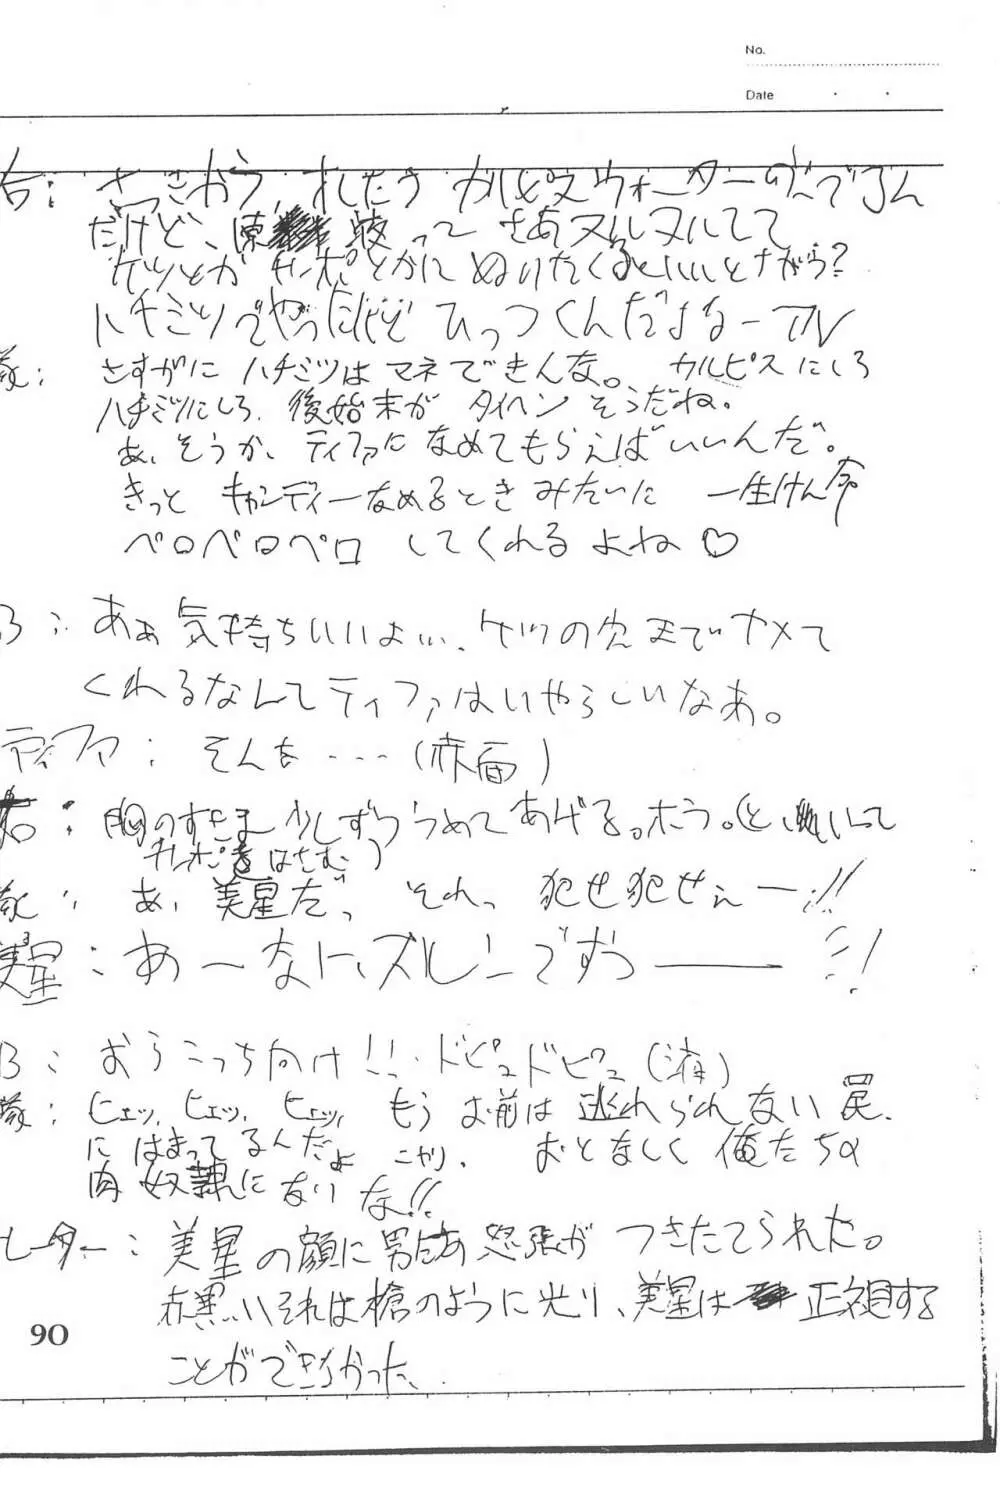 No.
Date
合: さっきから, れたろう カルピスウォーターのんでるん
だけど、 液って さあヌルヌルしてて
ケツとか チンポとかに ぬりたくるといいとながら?
ハチミツでやったけど ひっつくんだよなー
さすがに ハチミツは マネできんな。 カルピスにしろ
ハチミツにしろ、後始末が タイヘン そうだね。
あ、そうか、ティファに なめてもらえばいいんだ。
きっと キャンディーなめるとき みたいに 一生けん命
ペロペロペロ してくれるよね♡
ろ: あぁ気持ちいいよ…、ケツの穴までナメて
くれるなんてティファはいやらしいなあ。
ティファ: そんな・・・・(赤面)
右: 胸のすきま少しずつうめてあげる。ホラ。(と、いって
チンポをはさむ)
あ、美星だっ それっ 犯せ犯せぇー!!
美星: あーなト、ズルーンですっ――!!
B: おらこっち向け!!・ドピュドピュ(液)
ヒェッ, ヒェッ, ヒェッ, もう お前は 逃れられない 罠
に はまってるんだよ こやり. おとなしく 俺たちの
肉奴隷になりな!!
レーター: 美星の顔に男たちの怒張が つきたてられた。
赤黒いそれは槍のように光り、美星は 正視する
ことができなかった、
90